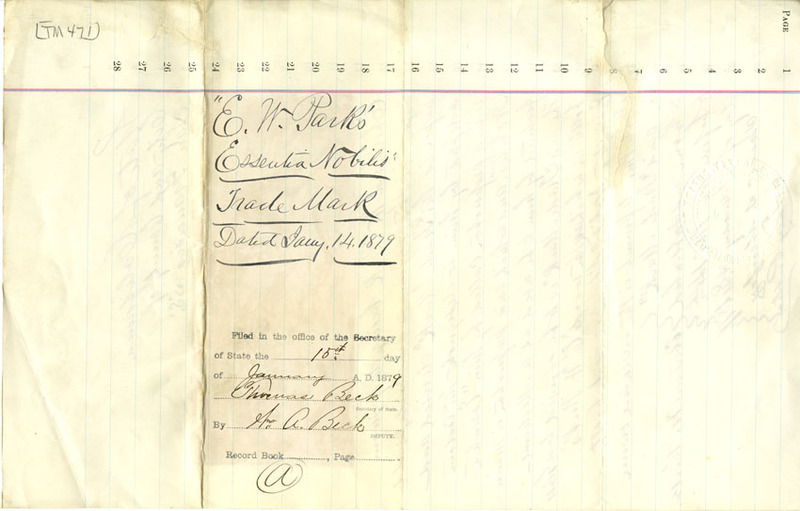 [TM 471]
PAGE 1 2 3 4 5 6 7 8 9 10 11 12 13 14 15 16 17 18 19 20 21 22 23 24 25 26 27 28
"E. W. Park's
Essentia Nobilis"
Trade Mark
Dated Jany. 14. 1879
Filed in the office of the Secretary
of State the 15th day
of January A. D. 1879
Thomas Beck
Secretary of State.
By Wm A. Beck
DEPUTY.
Record Book , Page
A